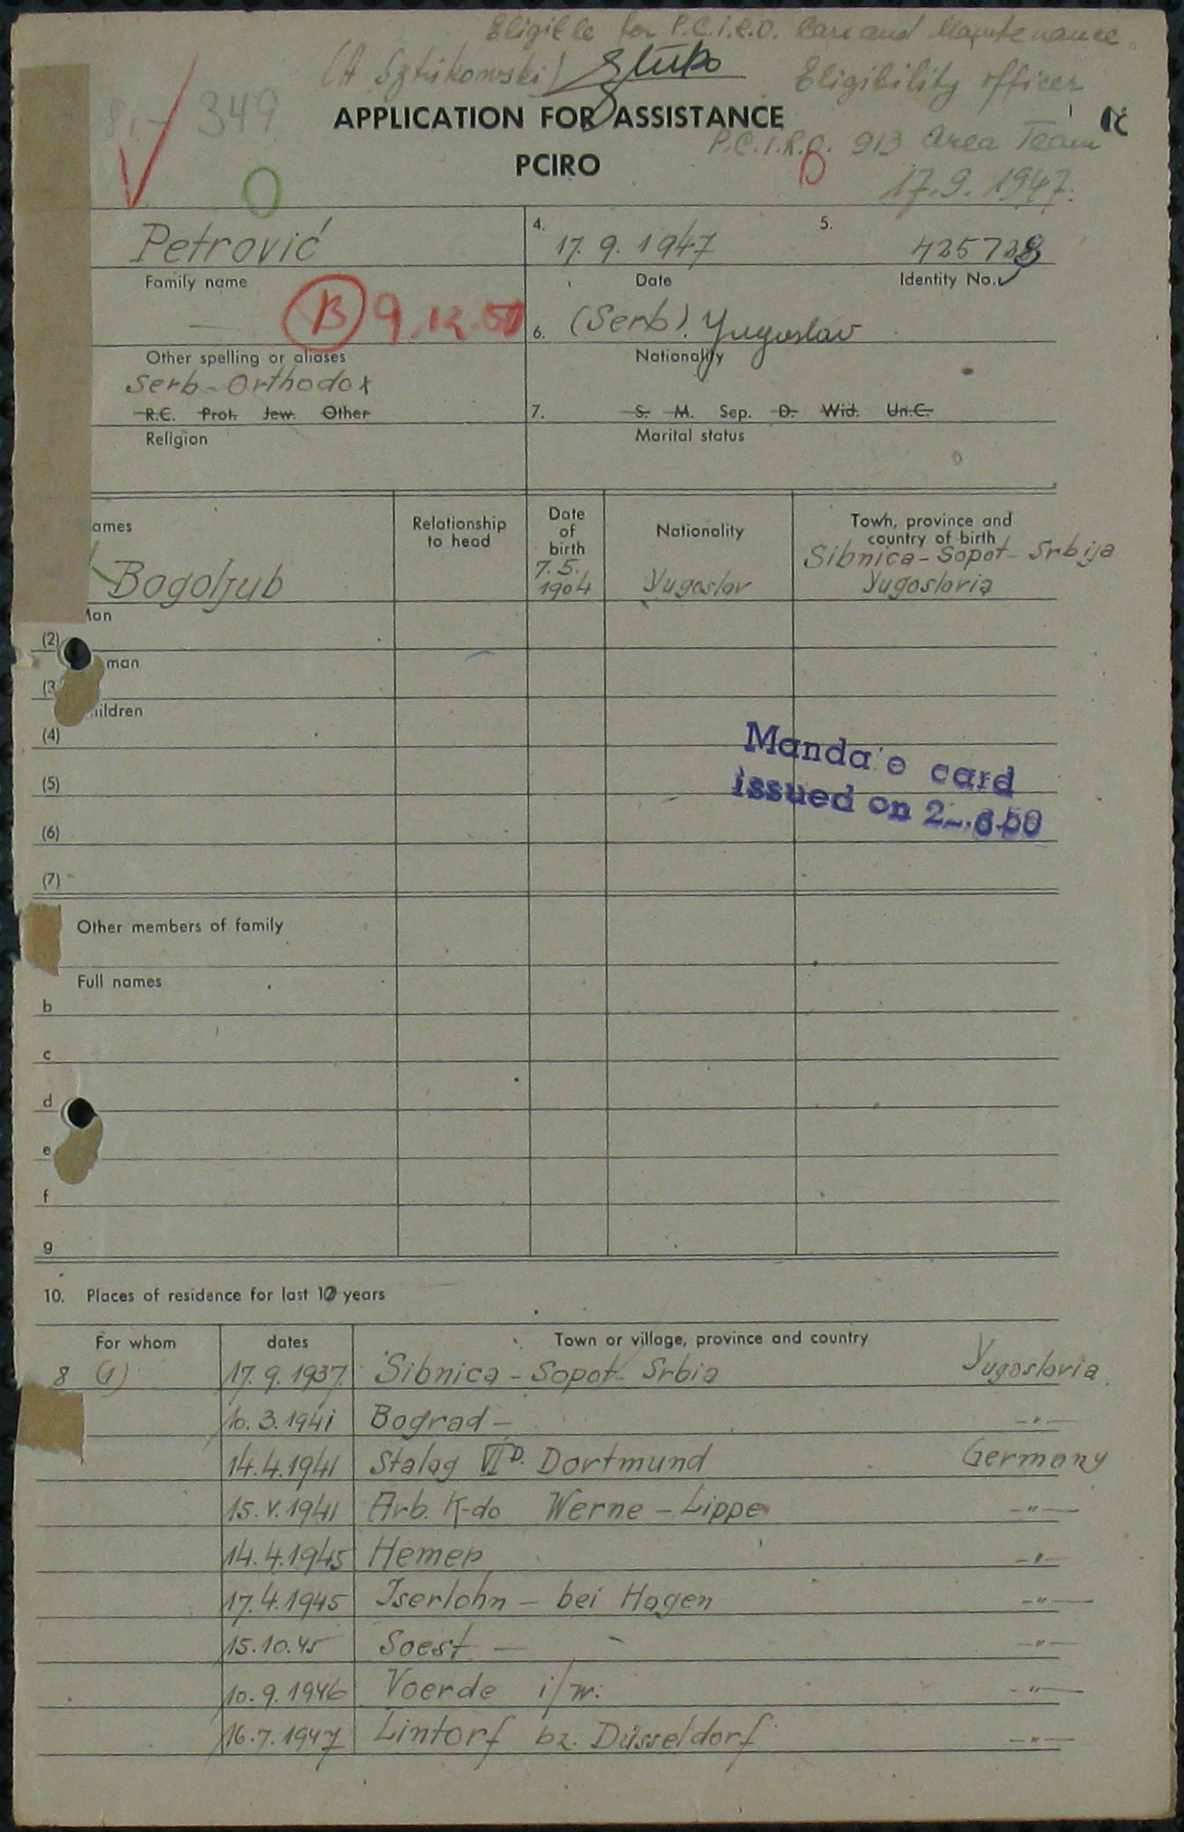 Eligible for P.C.I.R.O. Care and Maintenance.
(A Sztukowski) Sztuko Eligibility officer
349
APPLICATION FOR ASSISTANCE
P.C.I.R.O. 913 Area Team
PCIRO
B
17.9.1947.
Petrović
Family name
4. 17. 9. 1947
Date
5.
Identity No.
B 9.12.50
Other spelling or aliases
6. (Serb). Yugoslav
Nationality
Serb-Orthodox
R.C. Prot. Jew. Other
Religion
7. S. M. Sep. D. Wid. Un.C.
Marital status
ames
Relationship to head
Date of birth
Nationality
Town, province and country of birth
Bogoljub
7.5. 1904
Yugoslav
Sibnica-Sopot-Srbija
Yugoslavia
Man
(2)
man
(3
ildren
(4)
(5)
(6)
(7)
Manda e card
issued on
Other members of family
Full names
b
c
d
e
f
g
10. Places of residence for last 10 years
For whom dates Town or village, province and country
8 (1) 17.9.1937. Sibnica-Sopot-Srbia Yugoslavia.
10.3.1941 Bograd- -"-
14.4.1941 Stalag VI D. Dortmund Germany
15.V.1941 Arb. K-do Werne-Lippe -"-
14.4.1945 Hemer -"-
17.4.1945 Iserlohn - bei Hagen -"-
15.10.45 Soest - -"-
10.9.1946 Voerde i/w. -"-
16.7.1947 Lintorf bz. Düsseldorf -"-